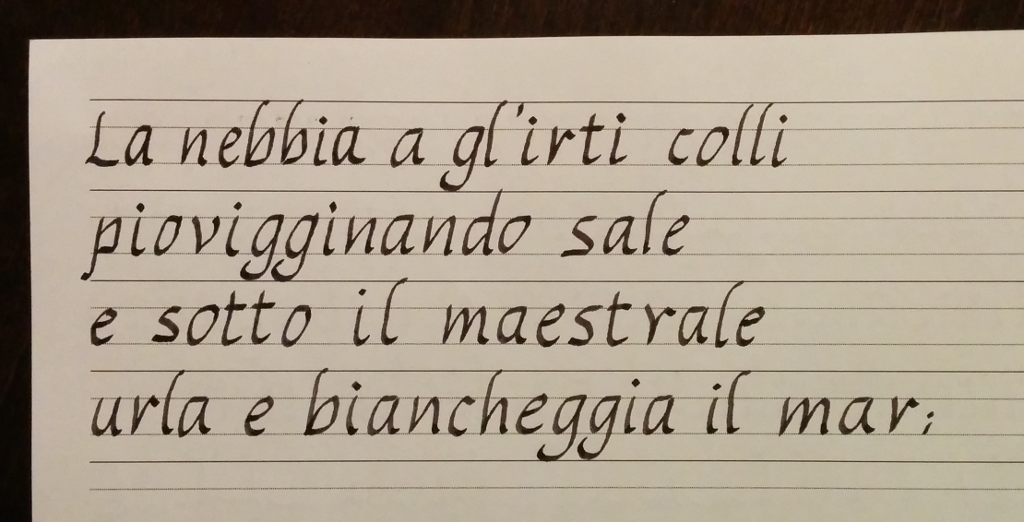 La nebbia a gl'irti colli
piovigginando sale
e sotto il maestrale
urla e biancheggia il mar;